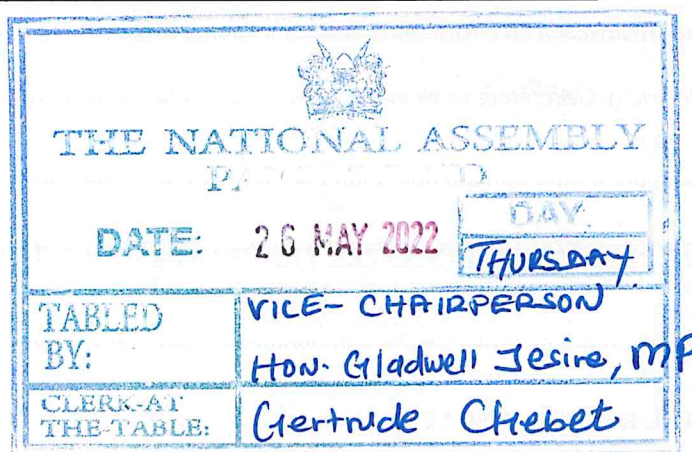 THE NATIONAL ASSEMBLY
DATE: 26 MAY 2022
DAY.
THURSDAY
TABLED BY:
VICE-CHAIRPERSON
HON. Gladwell Jesire, MP
CLERK-AT THE-TABLE:
Gertrude Chebet